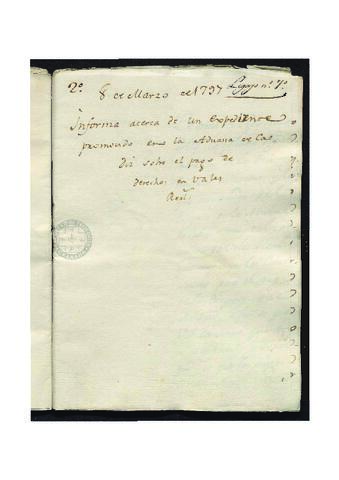 2º 8 de Marzo de 1797 Legajo nº 7º
Informe acerca de un Expediente
promovido en la Aduana de Ca
diz sobre el pago de
derechos en Vales
Reaˢ.